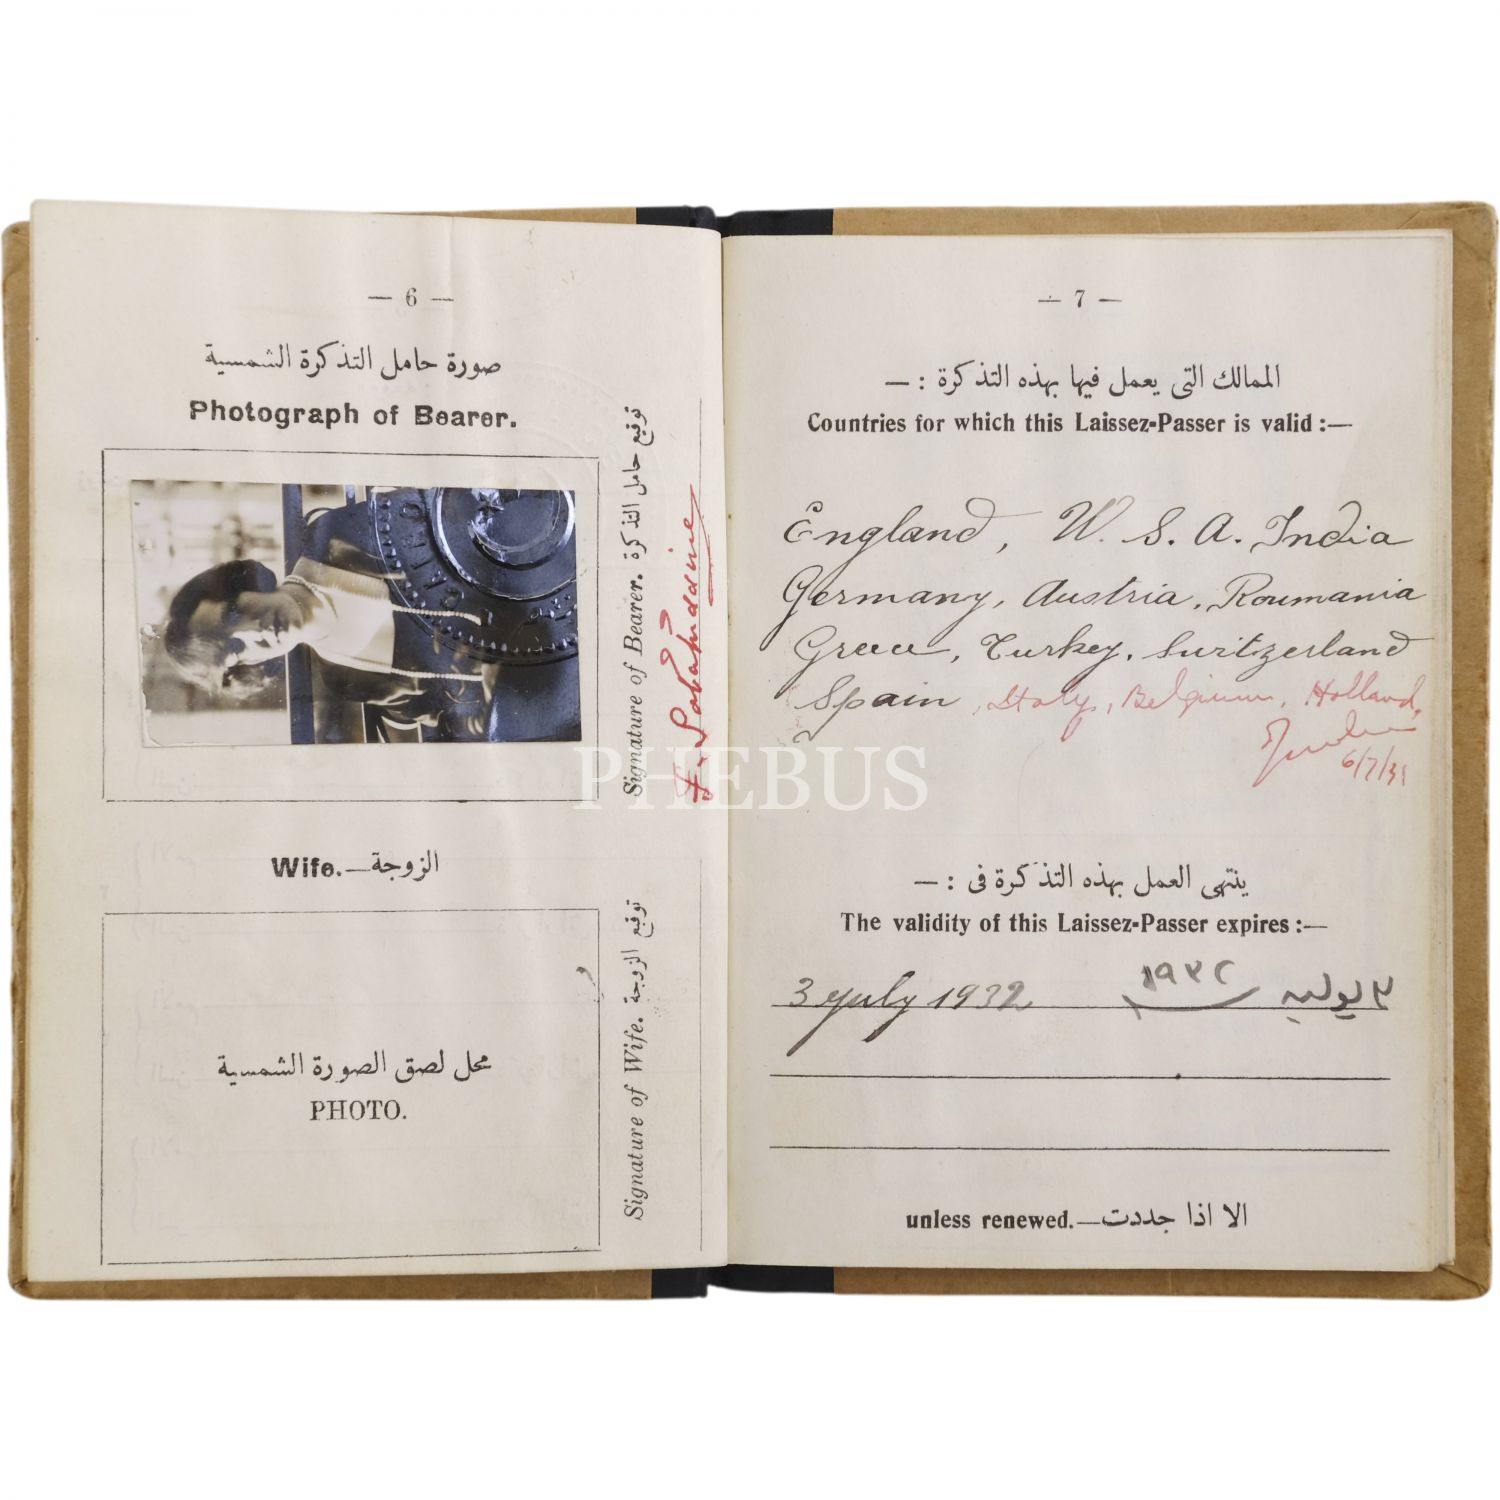 — 6 —
صورة حامل التذكرة الشمسية
Photograph of Bearer.
توقيع حامل التذكرة
Signature of Bearer.
الزوجة—Wife.
توقيع الزوجة
Signature of Wife.
محل لصق الصورة الشمسية
PHOTO.
— 7 —
الممالك التى يعمل فيها بهذه التذكرة : —
Countries for which this Laissez-Passer is valid :—
England, U. S. A. India
Germany, Austria, Roumania
Greece, Turkey, Switzerland
Spain, Italy, Belgium, Holland,
6/7/31
ينتهى العمل بهذه التذكرة فى : —
The validity of this Laissez-Passer expires :—
3 July 1932 ٣ يوليه ١٩٣٢
unless renewed.—الا اذا جددت
PHEBUS